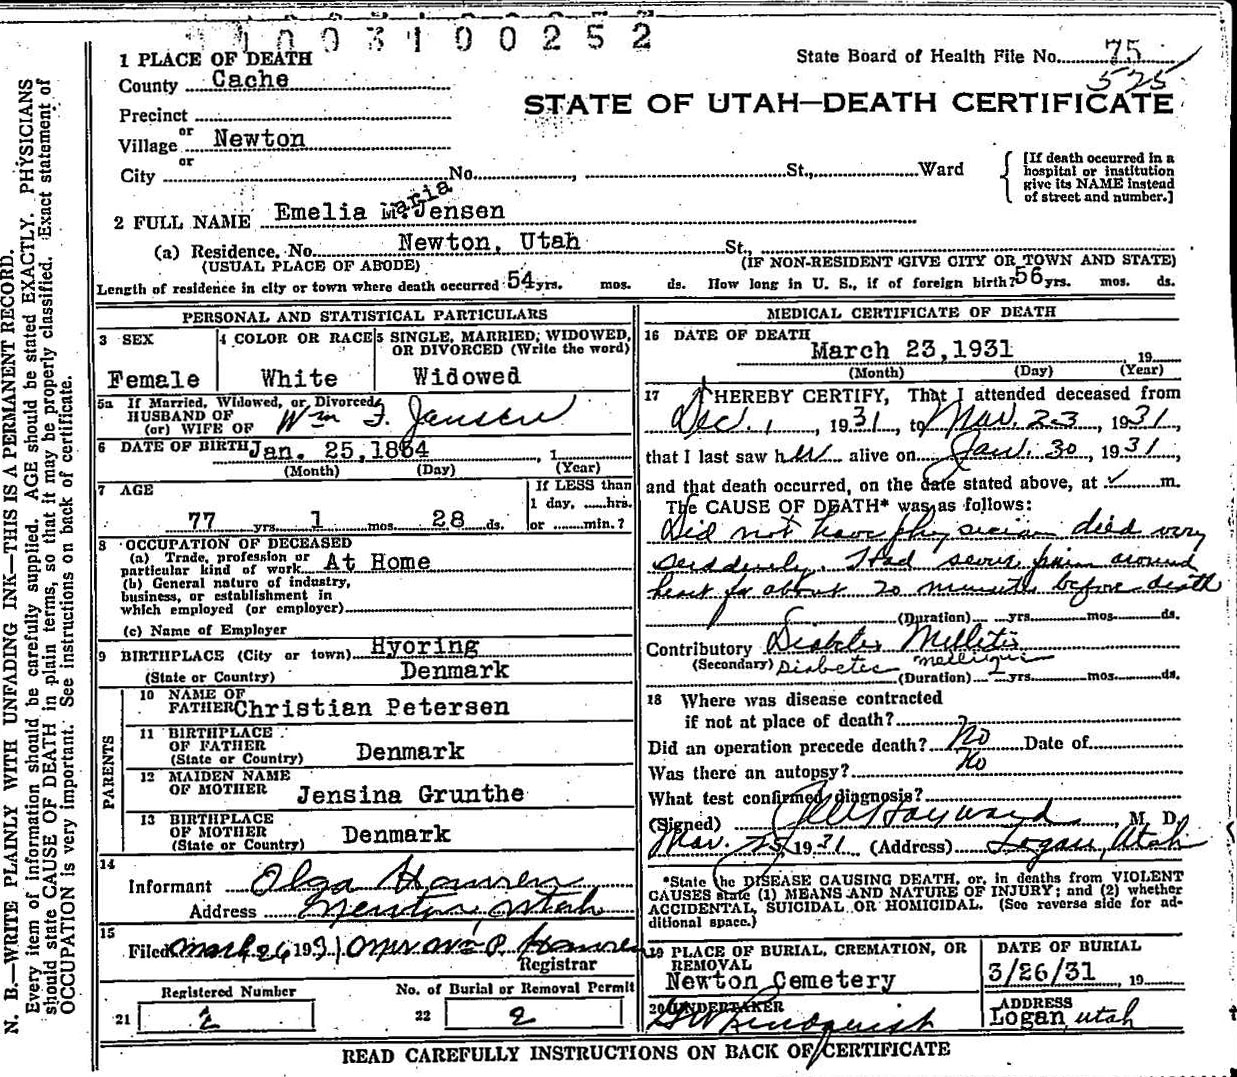 1003100252
1 PLACE OF DEATH
State Board of Health File No. 75
575
County Cache
STATE OF UTAH—DEATH CERTIFICATE
Precinct
or
Village Newton
or
City No. , St., Ward
[If death occurred in a
hospital or institution
give its NAME instead
of street and number.]
2 FULL NAME Emelia M. Jensen
aria
(a) Residence. No. Newton, Utah St.,
(USUAL PLACE OF ABODE) (IF NON-RESIDENT GIVE CITY OR TOWN AND STATE)
Length of residence in city or town where death occurred 54 yrs. mos. ds. How long in U. S., if of foreign birth? 56 yrs. mos. ds.
PERSONAL AND STATISTICAL PARTICULARS
3 SEX
Female
4 COLOR OR RACE
White
5 SINGLE, MARRIED, WIDOWED,
OR DIVORCED (Write the word)
Widowed
5a If Married, Widowed, or Divorced
HUSBAND OF
(or) WIFE OF Wm F. Jensen
6 DATE OF BIRTH Jan. 25,1854 , 1
(Month) (Day) (Year)
7 AGE
77 yrs. 1 mos. 28 ds.
If LESS than
1 day, ......hrs.
or ........min.?
8 OCCUPATION OF DECEASED
(a) Trade, profession or
particular kind of work At Home
(b) General nature of industry,
business, or establishment in
which employed (or employer)
(c) Name of Employer
9 BIRTHPLACE (City or town) Hyoring
(State or Country) Denmark
PARENTS
10 NAME OF
FATHER Christian Petersen
11 BIRTHPLACE
OF FATHER
(State or Country) Denmark
12 MAIDEN NAME
OF MOTHER Jensina Grunthe
13 BIRTHPLACE
OF MOTHER
(State or Country) Denmark
14
Informant Olga Hansen
Address Newton, Utah
15
Filed March 26 1931 Mrs P. Hansen
Registrar
Registered Number
21 2
No. of Burial or Removal Permit
22 2
MEDICAL CERTIFICATE OF DEATH
16 DATE OF DEATH
March 23,1931 , 19
(Month) (Day) (Year)
17 I HEREBY CERTIFY, That I attended deceased from
Dec. 1 , 1931, to Mar. 23, 1931,
that I last saw her alive on Jan. 30, 1931,
and that death occurred, on the date stated above, at m.
The CAUSE OF DEATH* was as follows:
Did not have physician died very
suddenly. Had sever pain around
heart for about 20 minutes before death
(Duration) yrs. mos. ds.
Contributory Diabetes Mellitis
(Secondary) Diabetes
(Duration) yrs. mos. ds.
18 Where was disease contracted
if not at place of death?
Did an operation precede death? No Date of
Was there an autopsy? No
What test confirmed diagnosis?
(Signed) Hayward , M. D.
Mar. 25, 1931 (Address) Logan, Utah
*State the DISEASE CAUSING DEATH, or, in deaths from VIOLENT
CAUSES state (1) MEANS AND NATURE OF INJURY; and (2) whether
ACCIDENTAL, SUICIDAL OR HOMICIDAL. (See reverse side for ad-
ditional space.)
19 PLACE OF BURIAL, CREMATION, OR
REMOVAL
Newton Cemetery
DATE OF BURIAL
3/26/31 , 19
20 UNDERTAKER
Lindquist
ADDRESS
Logan, utah
READ CAREFULLY INSTRUCTIONS ON BACK OF CERTIFICATE
N. B.—WRITE PLAINLY WITH UNFADING INK—THIS IS A PERMANENT RECORD.
Every item of information should be carefully supplied. AGE should be stated EXACTLY. PHYSICIANS
should state CAUSE OF DEATH in plain terms, so that it may be properly classified. Exact statement of
OCCUPATION is very important. See instructions on back of certificate.